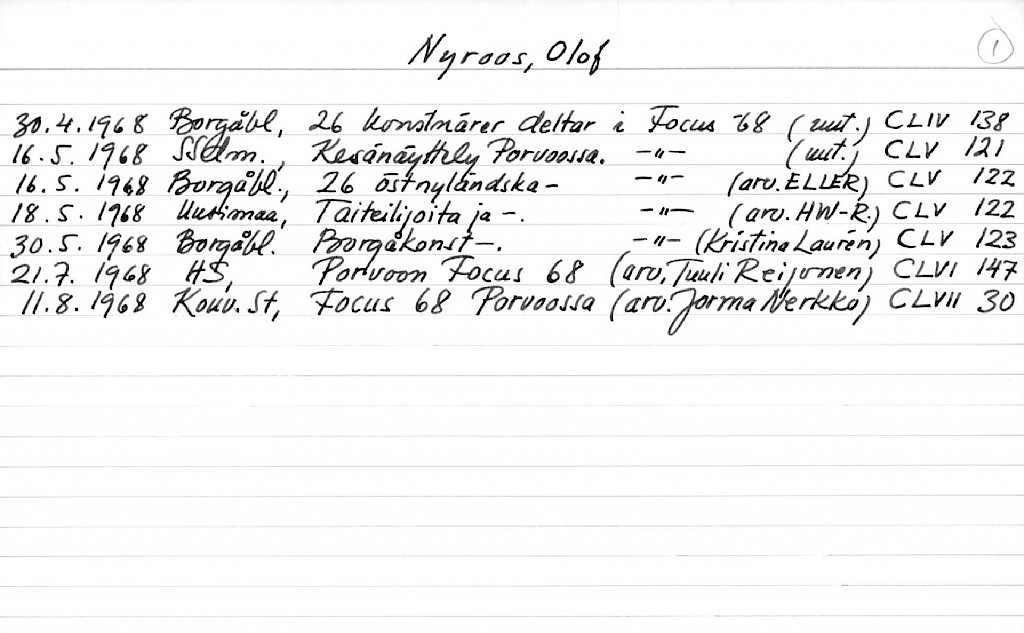 Nyroos, Olof
1
30.4.1968 Borgåbl, 26 konstnärer deltar i Focus -68 (uut.) CLIV 138
16.5.1968 SSdm., Kesänäyttely Porvoossa. -"- (uut.) CLV 121
16.5.1968 Borgåbl., 26 östnyländska- -"- (arv. ELLER) CLV 122
18.5.1968 Uusimaa, Taiteilijoita ja -. -"- (arv. HW-R.) CLV 122
30.5.1968 Borgåbl. Borgåkonst-. -"- (Kristina Laurén) CLV 123
21.7.1968 HS, Porvoon Focus 68 (arv. Tuuli Reijonen) CLVI 147
11.8.1968 Kouv. St, Focus 68 Porvoossa (arv. Jorma Nerkko) CLVII 30